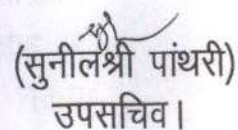 (सुनीलश्री पांथरी)
उपसचिव।